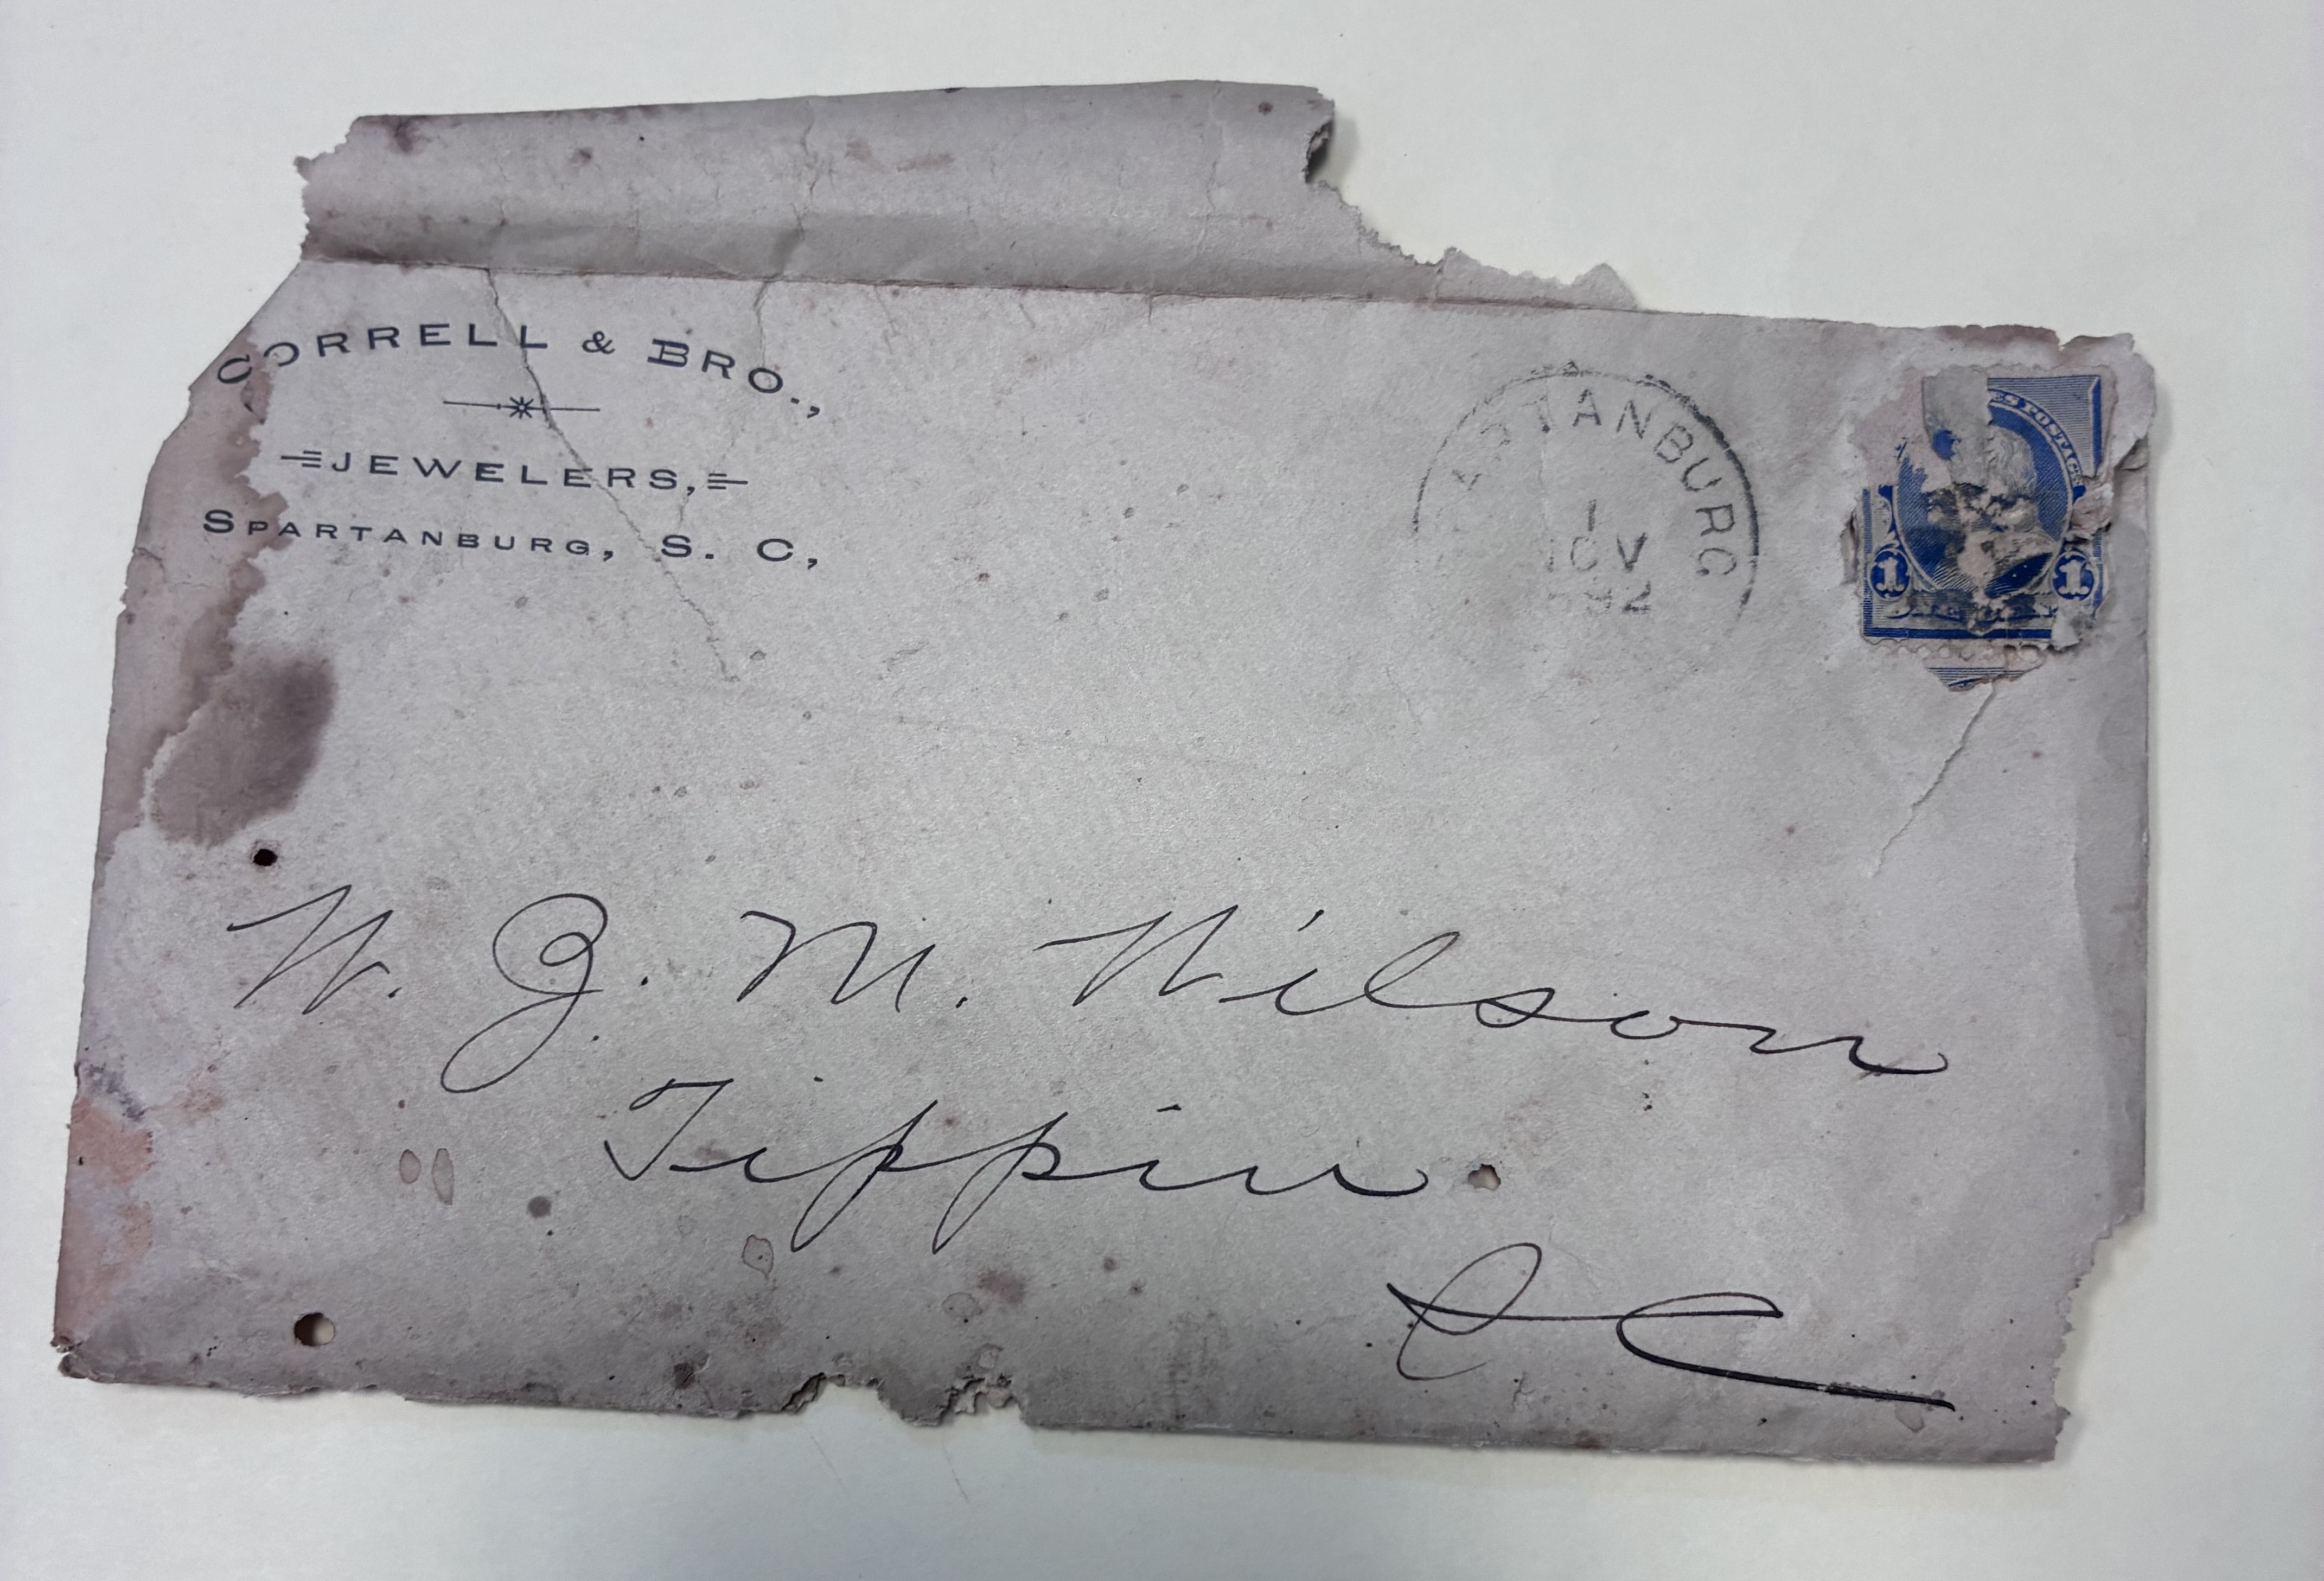 CORRELL & BRO.,
JEWELERS,
SPARTANBURG, S. C,
ARTANBURG
1
OV
92
ES POSTAGE
1 1
W. J. M. Wilson
Tippin
S C